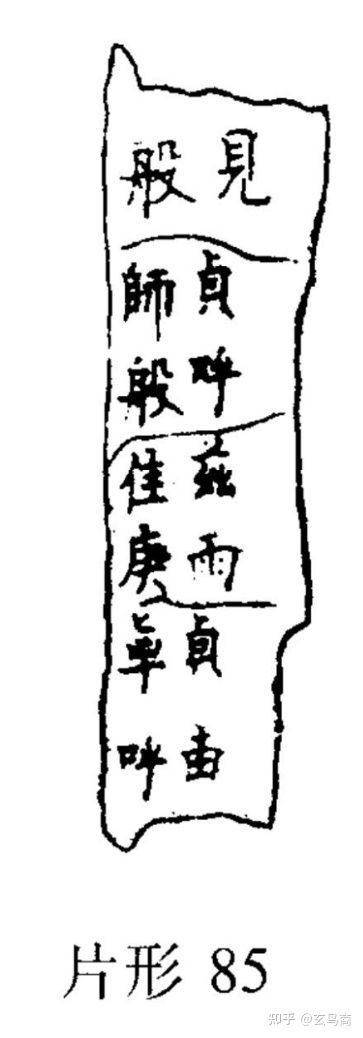 見
般
貞呼
師般
茲雨
隹庚
貞叀
呼
片形 85
知乎 @玄鸟商